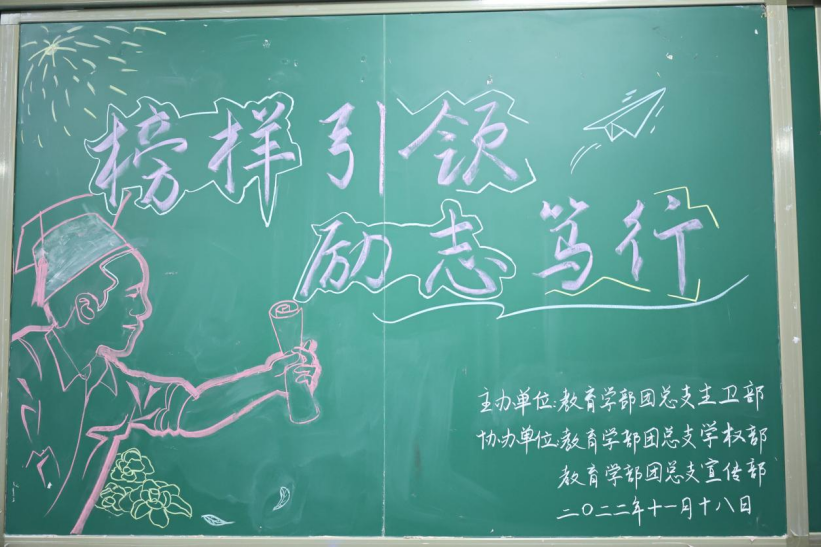 榜样引领
励志笃行
主办单位:教育学部团总支主卫部
协办单位:教育学部团总支学权部
教育学部团总支宣传部
二〇二二年十一月十八日